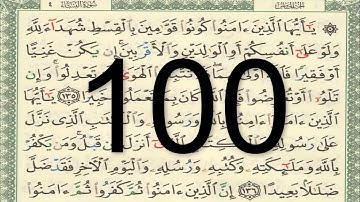 الجزء الخامس سورة النساء ٤
۞ يَٰٓأَيُّهَا ٱلَّذِينَ ءَامَنُوا۟ كُونُوا۟ قَوَّٰمِينَ بِٱلْقِسْطِ شُهَدَآءَ لِلَّهِ
وَلَوْ عَلَىٰٓ أَنفُسِكُمْ أَوِ ٱلْوَٰلِدَيْنِ وَٱلْأَقْرَبِينَ إِن يَكُنْ غَنِيًّا
أَوْ فَقِيرًا تَتَّبِعُوا۟ ٱلْهَوَىٰٓ تَعْدِلُوا۟ وَإِن
تَلْوُۥٓا۟ أَوْ تُعْرِضُوا۟ فَإِنَّ ٱللَّهَ كَانَ بِمَا تَعْمَلُونَ خَبِيرًا ١٣٥ يَٰٓأَيُّهَا
ٱلَّذِينَ ءَامَنُوٓا۟ ٱلَّذِى نَزَّلَ
عَلَىٰ رَسُولِهِۦ أَنزَلَ مِن قَبْلُ وَمَن يَكْفُرْ
بِٱللَّهِ وَمَلَٰٓئِكَتِهِۦ وَكُتُبِهِۦ وَرُسُلِهِۦ وَٱلْيَوْمِ ٱلْءَاخِرِ فَقَدْ ضَلَّ
ضَلَٰلًۢا بَعِيدًا ١٣٦ إِنَّ ٱلَّذِينَ ءَامَنُوا۟ ثُمَّ كَفَرُوا۟ ثُمَّ ءَامَنُوا۟
100